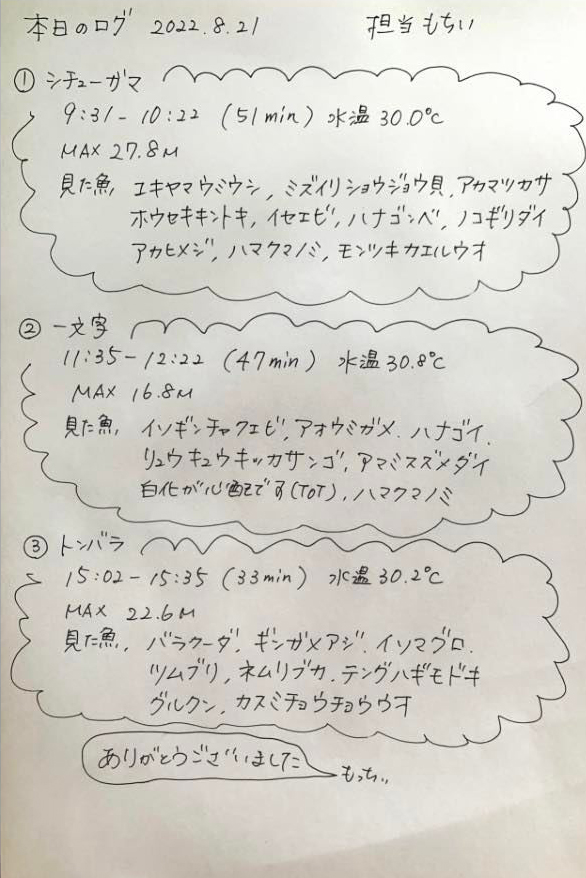 本日のログ 2022.8.21 担当もちい
① シチューガマ
9:31 - 10:22 (51min) 水温 30.0℃
MAX 27.8M
見た魚, エキヤマウミウシ, ミズイリショウジョウ貝, アカマツカサ
ホウセキキントキ, イセエビ, ハナゴンベ, ノコギリダイ
アカヒメジ, ハマクマノミ, モンツキカエルウオ
② 一文字
11:35 - 12:22 (47min) 水温 30.8℃
MAX 16.8M
見た魚, イソギンチャクエビ, アオウミガメ. ハナゴイ.
リュウキュウキッカサンゴ, アマミスズメダイ
白化が心配です(ToT), ハマクマノミ
③ トンバラ
15:02 - 15:35 (33min) 水温 30.2℃
MAX 22.6M
見た魚, バラクーダ, ギンガメアジ. イソマグロ.
ツムブリ, ネムリブカ. テングハギモドキ
グルクン, カスミチョウチョウウオ
ありがとうございました
もっちぃ